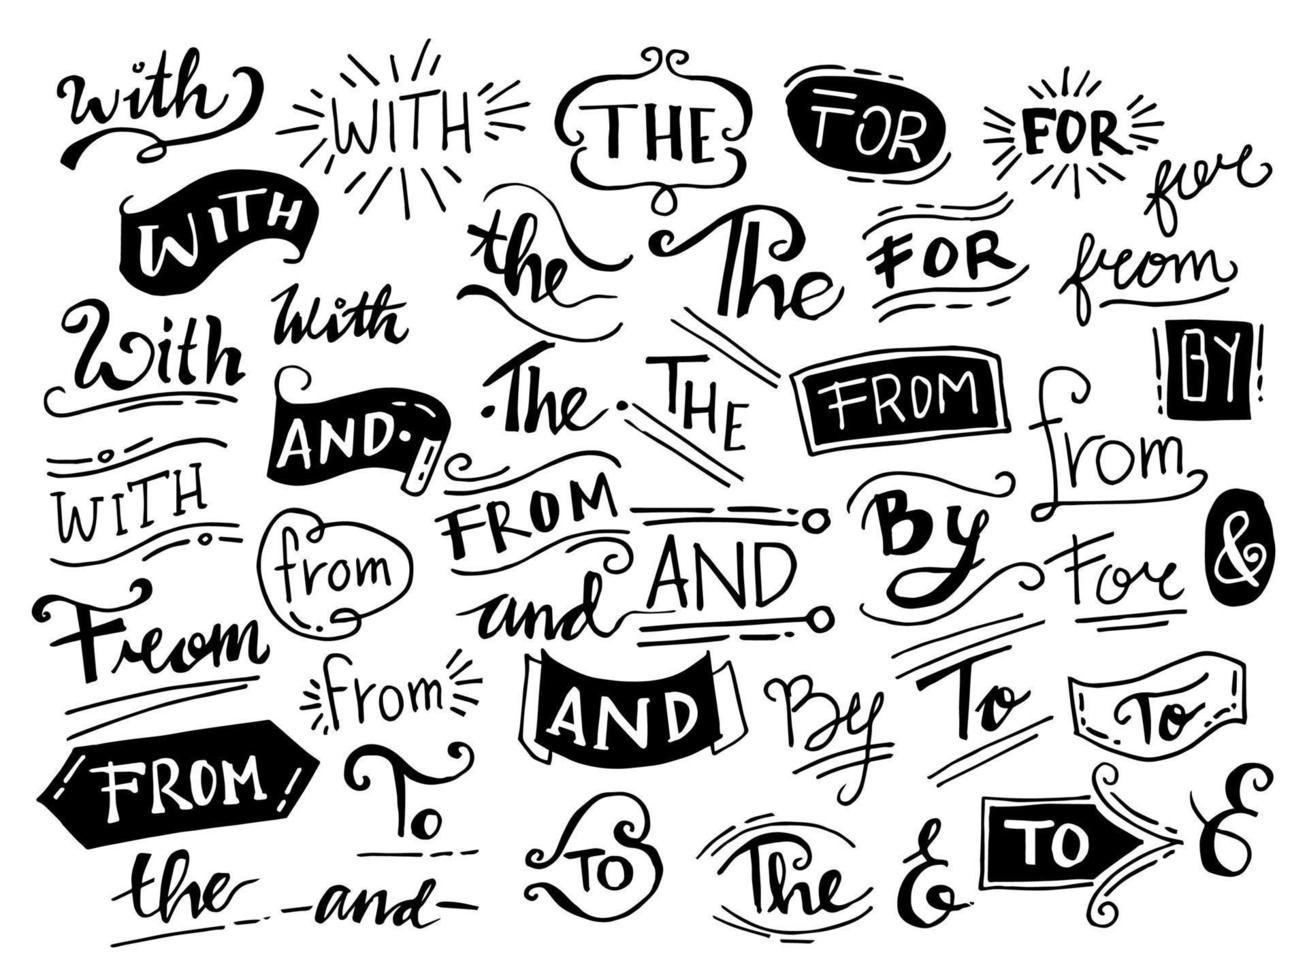 with
WITH
THE
FOR
FOR
for
WITH
the
The
FOR
from
With
With
The
THE
FROM
BY
AND
from
WITH
FROM
By
&
from
and
AND
For
From
from
AND
By
To
To
FROM
To
To
The
&
TO
&
the
and